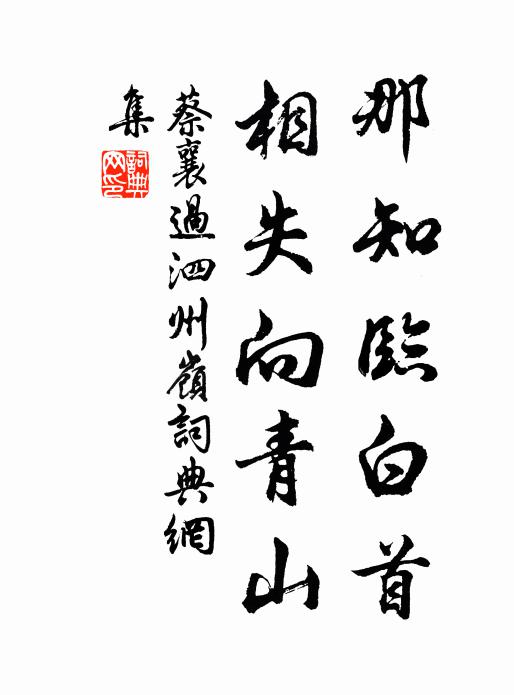 那知臨白首
相失向青山
蔡襄過泗州嶺詞典網
集
詞典
网印